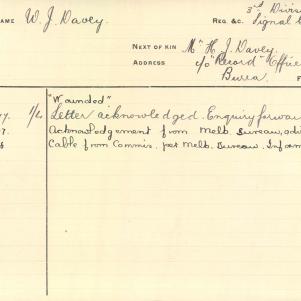 NAME W. J. Davey. REG. &c. 3rd Divis
Signal
NEXT OF KIN Mr H. J. Davey.
ADDRESS c/o "Record" Office
"Wounded"
Letter acknowledged. Enquiry forwar
Acknowledgement from Melb. Bureau, adv
Cable from Commis. per Melb. Bureau. Inform